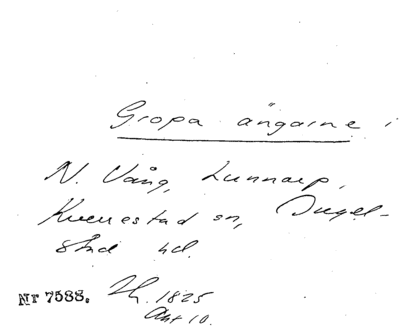 Gropa ängarne i
N. Vång, Lunnarp,
Kverrestad sn, Ingel-
stad hd.
Nr 7588. 1825
Akt 10.